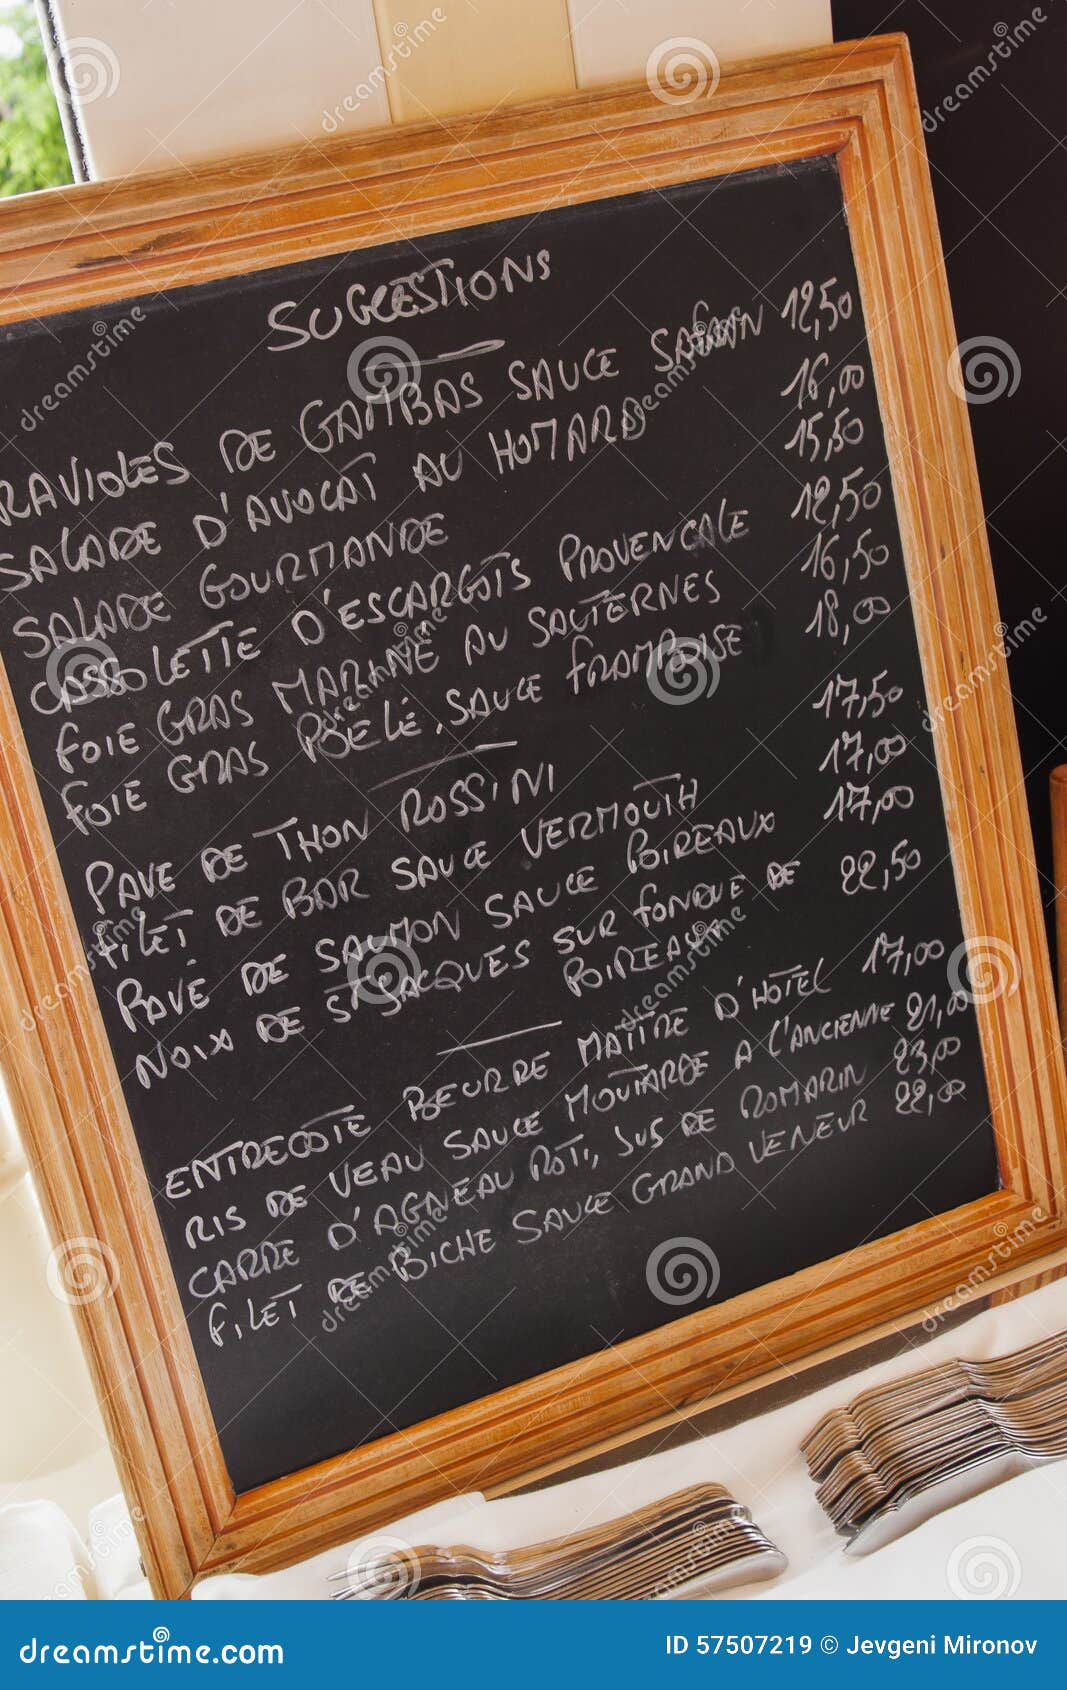 SUGGESTIONS
RAVIOLES DE GAMBAS SAUCE SAFRAN 12,50
SALADE D'AVOCAT AU HOMARD 16,00
SALADE GOURMANDE 15,50
CASSOLETTE D'ESCARGOTS PROVENCALE 12,50
FOIE GRAS MARINÉ AU SAUTERNES 16,50
FOIE GRAS POELÉ, SAUCE FRAMBOISE 18,00
PAVE DE THON ROSSINI 17,50
FILET DE BAR SAUCE VERMOUTH 17,00
PAVÉ DE SAUMON SAUCE POIREAUX 17,00
NOIX DE ST JACQUES SUR FONDUE DE 22,50
POIREAUX
ENTRECOTE BEURRE MAITRE D'HOTEL 17,00
RIS DE VEAU SAUCE MOUTARDE A L'ANCIENNE 21,00
CARRE D'AGNEAU ROTI, JUS DE ROMARIN 23,00
FILET DE BICHE SAUCE GRAND VENEUR 22,00
dreamstime.com
ID 57507219 © Jevgeni Mironov